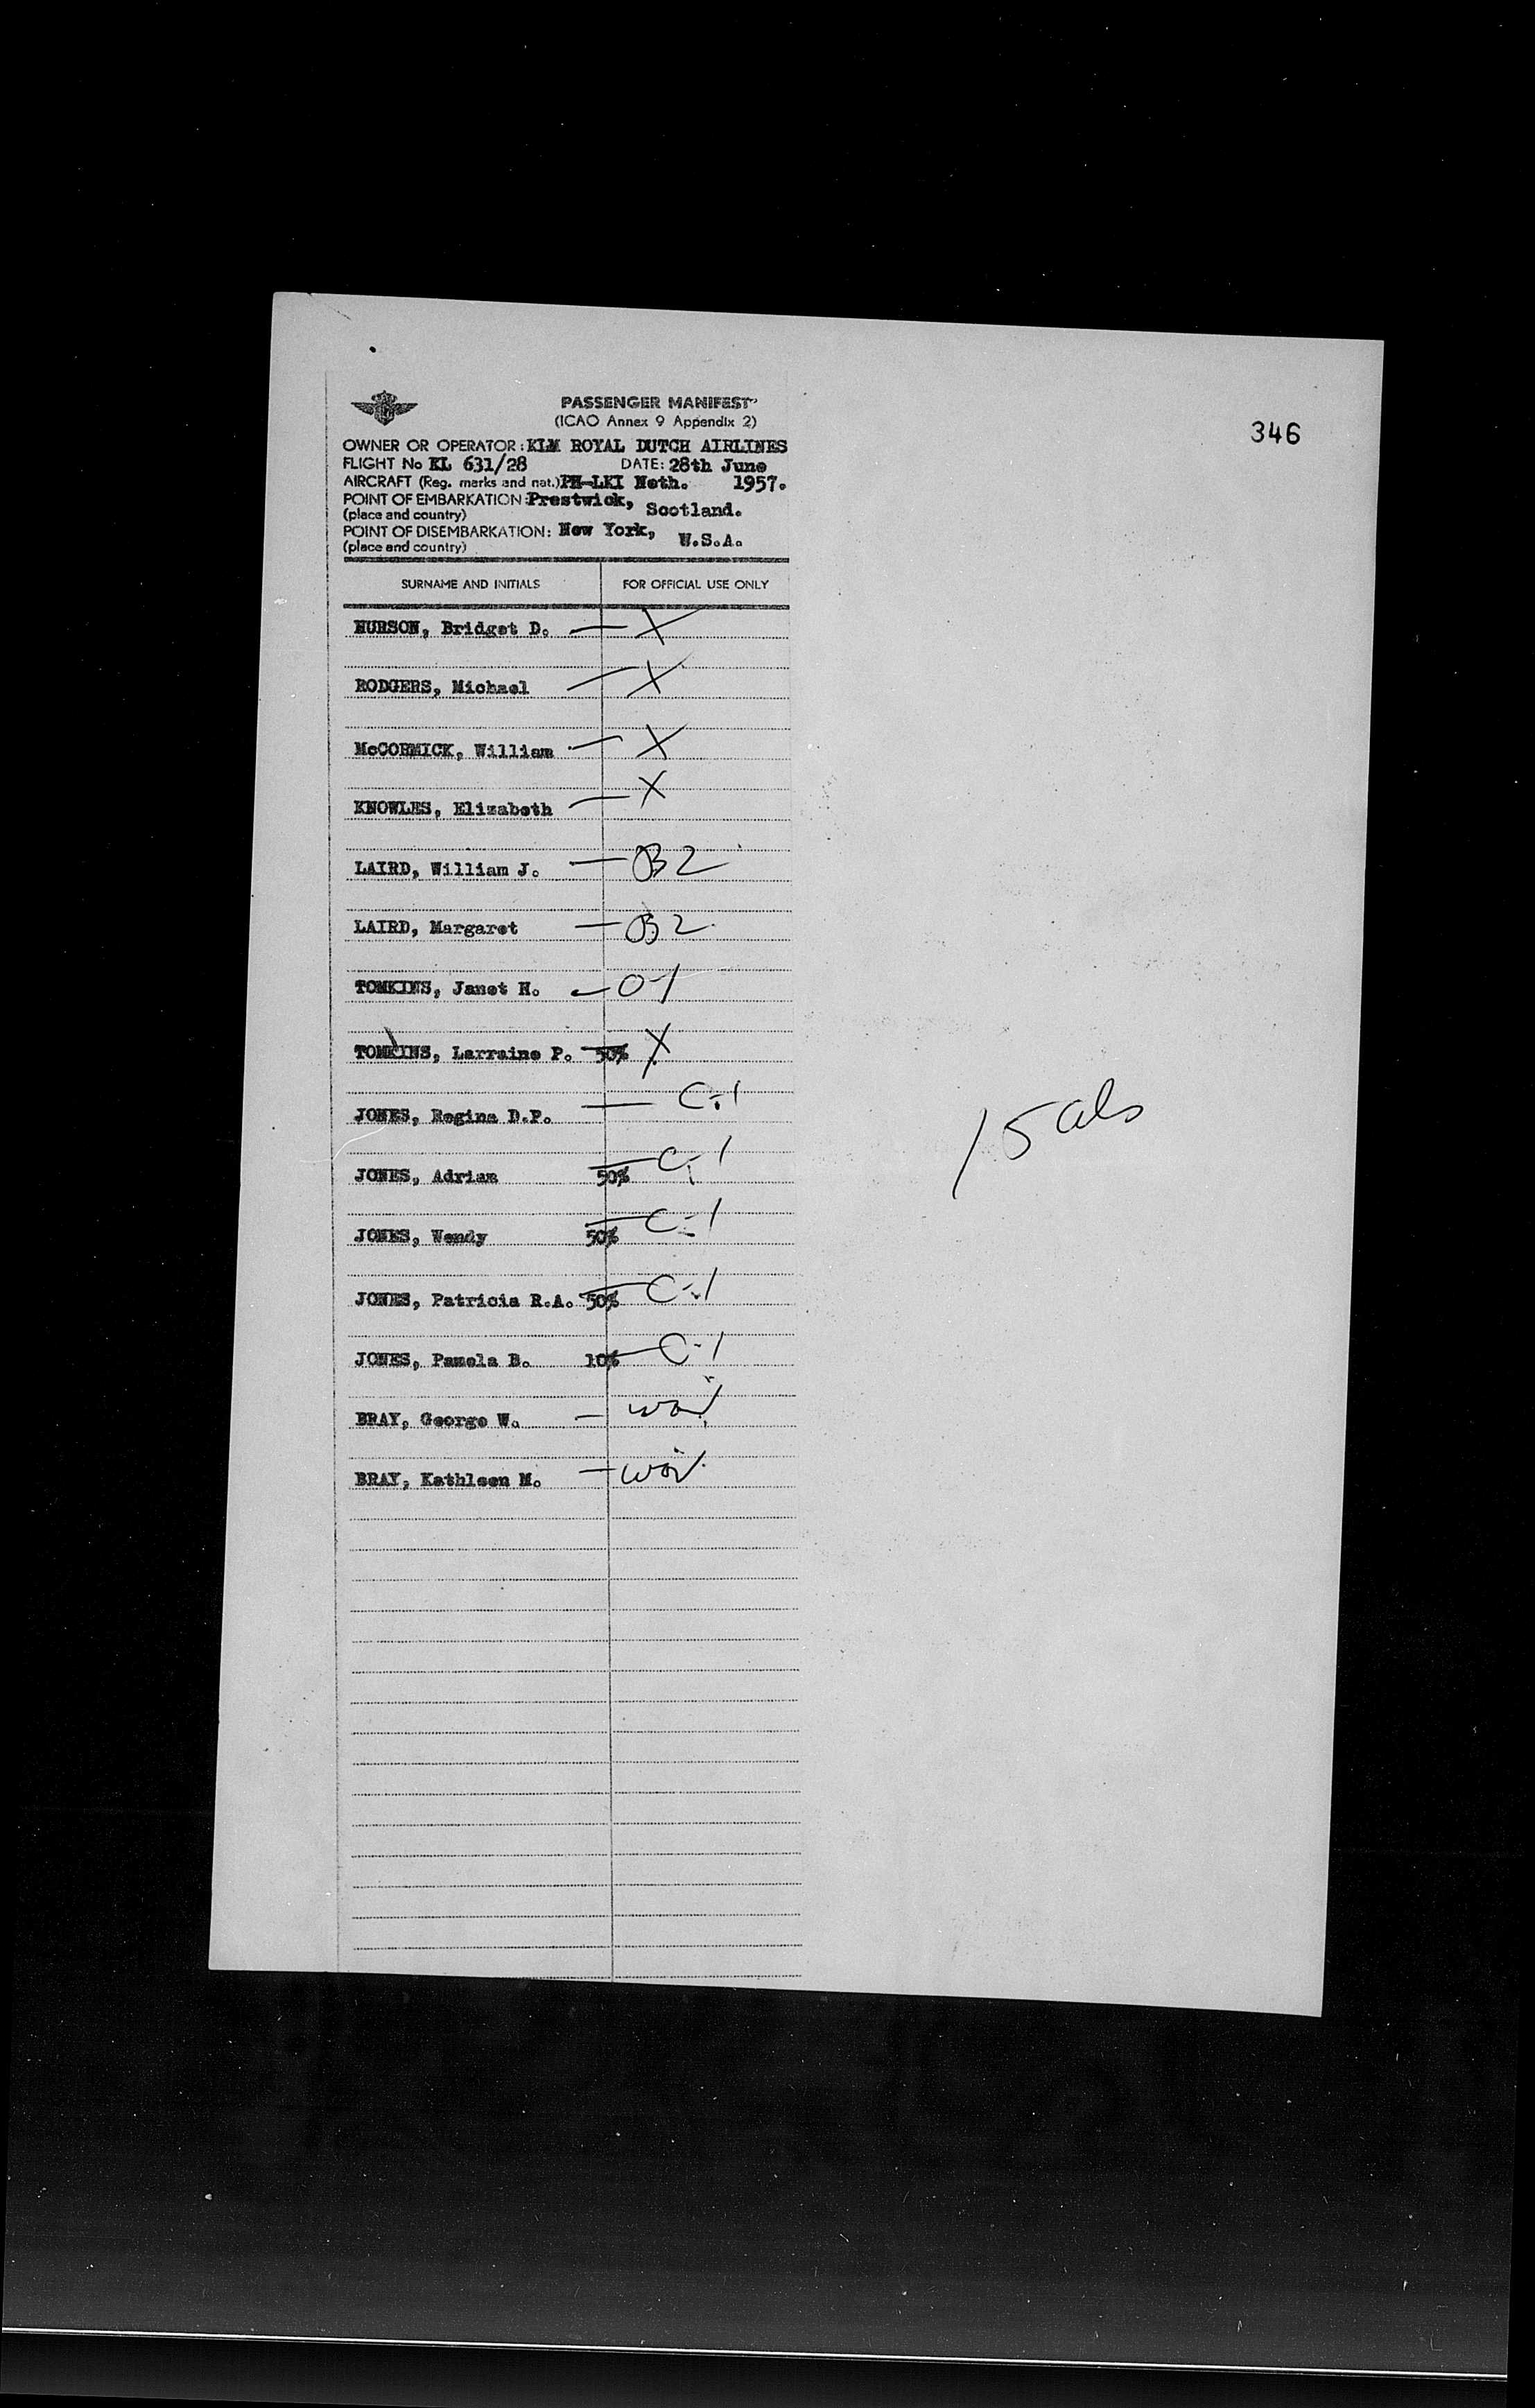 346
PASSENGER MANIFEST
(ICAO Annex 9 Appendix 2)
OWNER OR OPERATOR: KLM ROYAL DUTCH AIRLINES
FLIGHT No KL 631/28 DATE: 28th June
AIRCRAFT (Reg. marks and nat.) PH-LKI Neth. 1957.
POINT OF EMBARKATION: Prestwick, Scotland.
(place and country)
POINT OF DISEMBARKATION: New York, U.S.A.
(place and country)
SURNAME AND INITIALS FOR OFFICIAL USE ONLY
HURSON, Bridget D. — X
RODGERS, Michael — X
McCORMICK, William — X
KNOWLES, Elizabeth — X
LAIRD, William J. — B2
LAIRD, Margaret — B2
TOMKINS, Janet H. — O-1
TOMKINS, Larraine P. 50% X
JONES, Regina D.P. — C-1
JONES, Adrian 50% — C-1
JONES, Wendy 50% — C-1
JONES, Patricia R.A. 50% — C-1
JONES, Pamela B. 10% — C-1
BRAY, George W. —
BRAY, Kathleen M. —
15 als